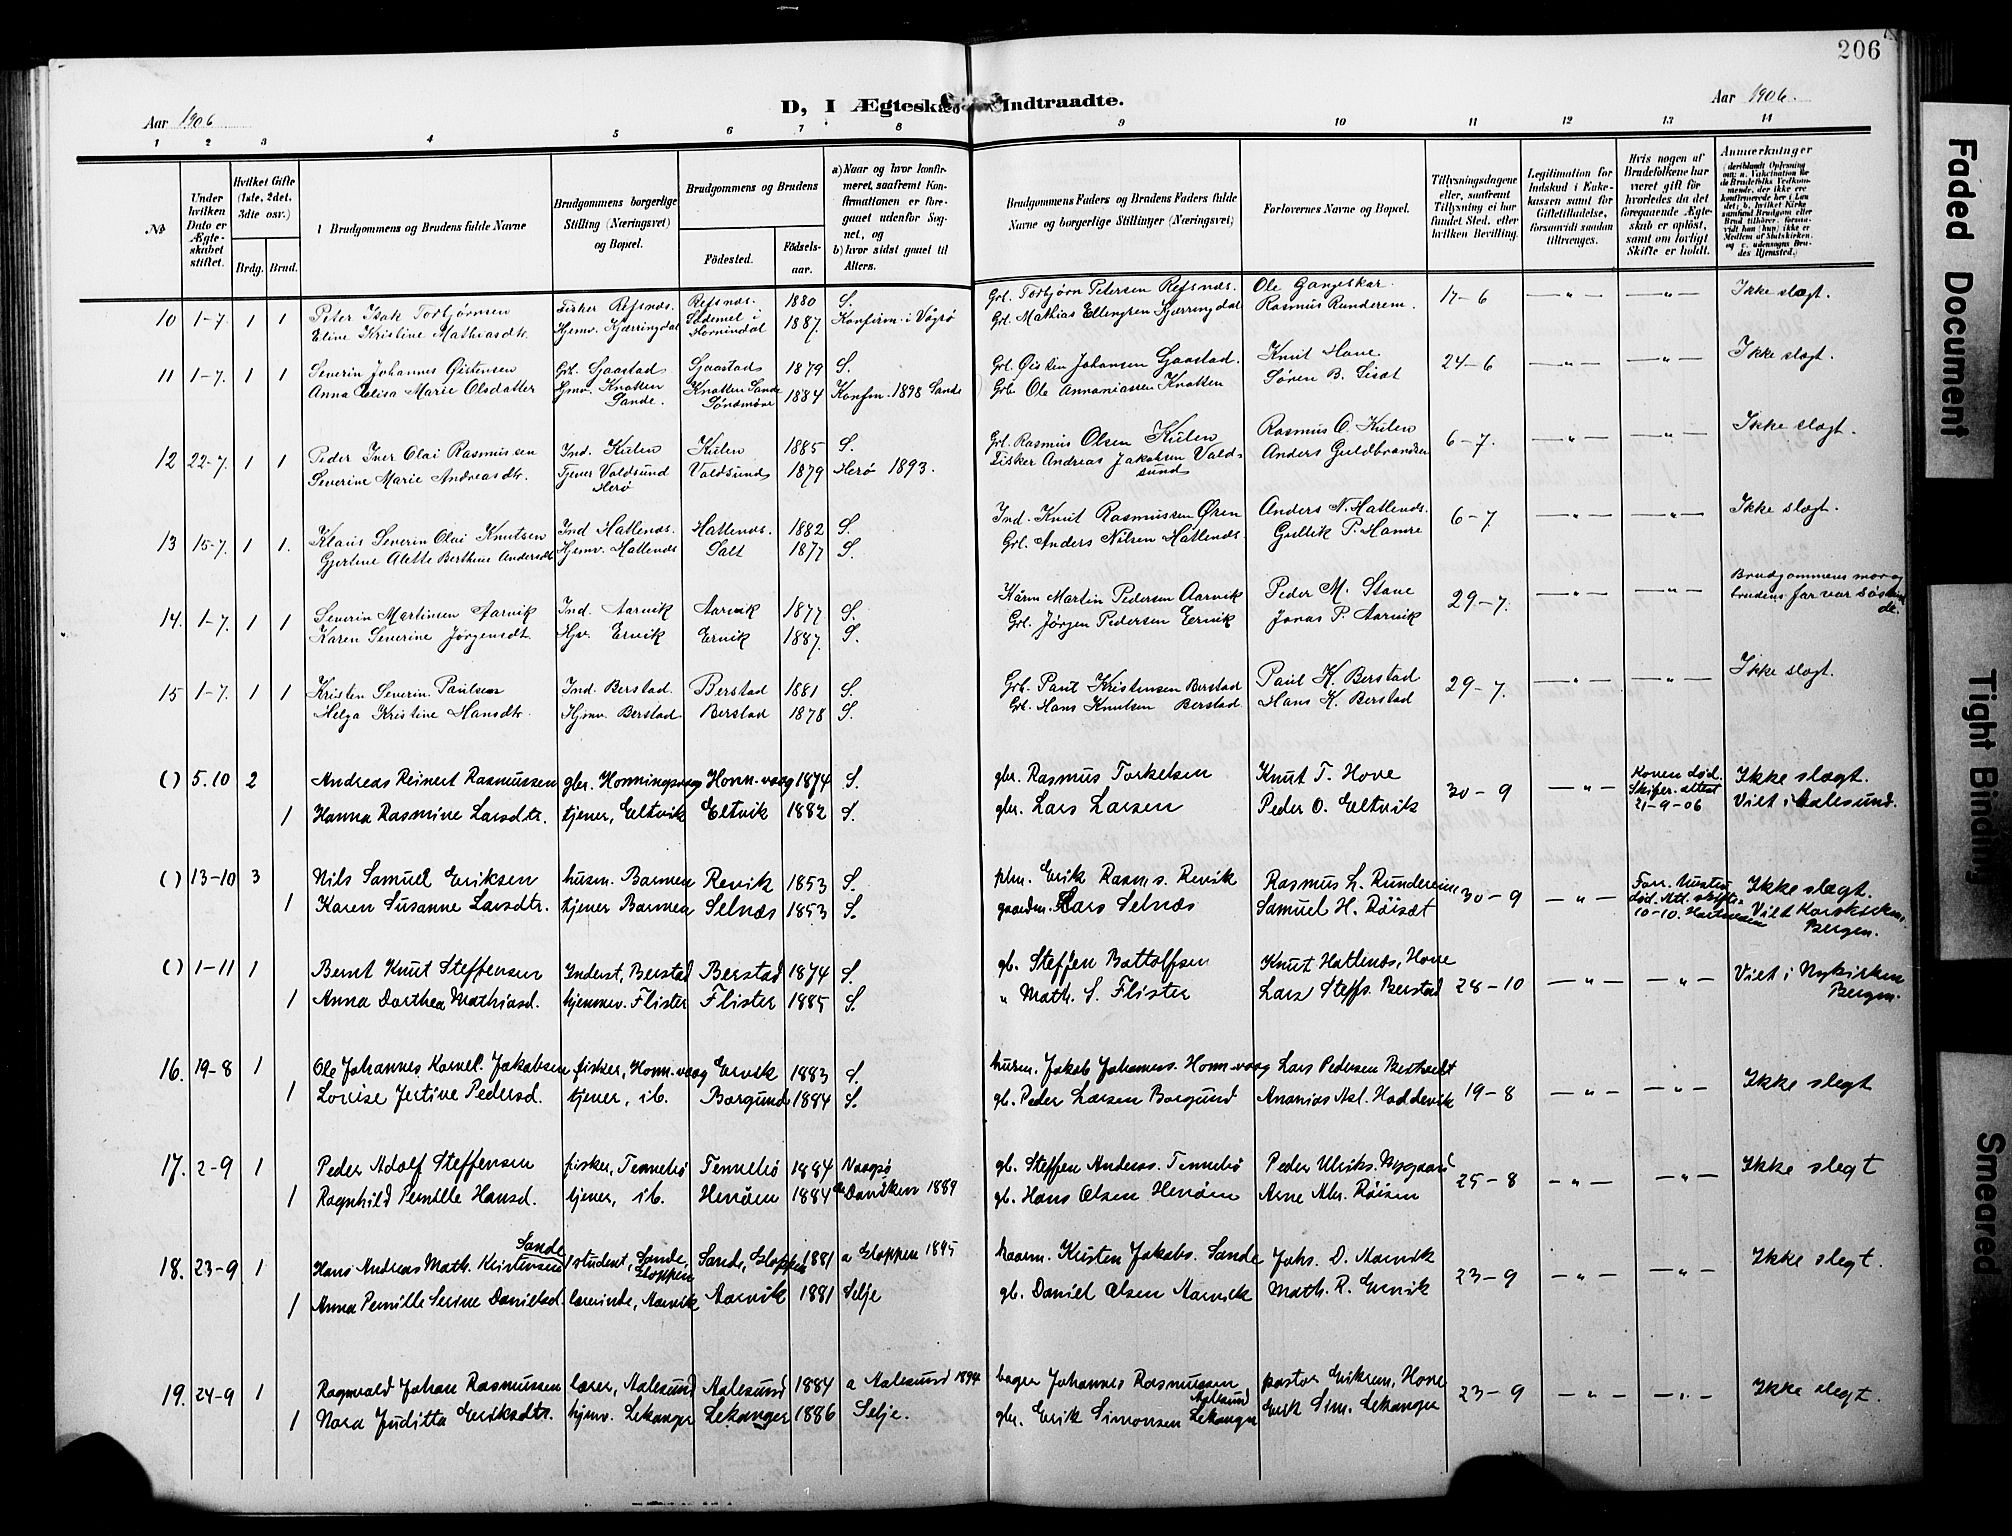 206
D, I Ægteska Indtraadte.
Aar 1906
Aar 1906.
1 2 3 4 5 6 7 8 9 10 11 12 13 14
№
Under hvilken Dato er Ægteskabet stiftet.
Hvilket Gifte (1ste, 2det, 3dte osv.)
Brdg. Brud.
Brudgommens og Brudens fulde Navne
Brudgommens borgerlige Stilling (Næringsvei) og Bopæl.
Brudgommens og Brudens
Fødested.
Fødselsaar.
a) Naar og hvor konfirmeret, saafremt Konfirmationen er foregaaet udenfor Sognet, og
b) hvor sidst gaaet til Alters.
Brudgommens Faders og Brudens Faders fulde Navne og borgerlige Stillinger (Næringsvei)
Forlovernes Navne og Bopæl.
Tillysningsdagene eller, saafremt Tillysning ei har fundet Sted, efter hvilken Bevilling.
Legitimation for Indskud i Enkekassen samt for Giftetilladelse, forsaavidt saadan tiltrænges.
Hvis nogen af Brudefolkene har været gift før hvorledes da det foregaaende Ægteskab er opløst, samt om lovligt Skifte er holdt.
Anmærkninger
10 1-7. 1 1 Peter Isak Torbjørnsen Fisker Refsnæs. Refsnæs. 1880 S. Grb. Torbjørn Petersen Refsnæs. Ole Gangeskar 17-6 —„— —„— Ikke slægt.
Eline Kristine Mathiasdtr. Hjmv. Kjærringdal Hornindal 1887. Konfirm. i Vågsø Grb. Mathias Ellingsen Kjærringdal Rasmus Runderem.
11 1-7. 1 1 Severin Johannes Øistensen Grb. Sjaastad Sjaastad 1879 S. Grb. Øisten Johansen Sjaastad. Knut Hove 24-6 —„— —„— Ikke slægt.
Anna Elisa Marie Olsdatter Hjmv. Knotten Sande. Knotten Sande Søndmøre 1884 Konfirm. 1898 Sande Grb. Ole Annaniassen Knotten Søren B.
12 22-7. 1 1 Peder Iver Olai Rasmussen Ind. Kulen Kulen 1885 S. Grb. Rasmus Olsen Kulen Rasmus O. Kulen 6-7. —„— —„— Ikke slægt.
Severine Marie Andreasdtr. Tjener Voldsund Herø Voldsund 1879 Herø 1893. Fisker Andreas Jakobsen Voldsund Anders Guldbrandsen
13 15-7. 1 1. Klaus Severin Olai Knutsen Ind Hatlenæs. Hatlenæs. 1882 S. Ind. Knut Rasmussen Øren Anders N. Hatlenæs. 6-7 —„— —„— Ikke slægt.
Gjertine Alette Berthine Andersdtr Hjemv. Hatlenæs Salt 1877 S. Grb. Anders Nilsen Hatlenæs. Gullik P. Hamre
14. 1-7. 1 1 Severin Martinsen Aarvik Ind. Aarvik Aarvik 1877 S. Kårm Martin Pedersen Aarvik Peder M. Stave 29-7. —„— —„— Brudgommens mor og brudens far var søskende.
Karen Severine Jørgensdt. Hjv. Ervik Ervik 1887. S. Grb. Jørgen Pedersen Ervik Jonas P. Aarvik
15 1-7. 1 1 Kristen Severin Paulsen Ind. Berstad. Berstad 1881 S. Grb. Paul Kristensen Berstad Paul K. Berstad 29-7. —„— —„— Ikke slægt.
Helga Kristine Hansdtr. Hjmv. Berstad Berstad 1878 S. Grb. Hans Knutsen Berstad Hans K. Berstad
() 5.10 2 Andreas Reinert Rasmussen gbr. Honningsvaag Honn.-vaag 1874 S. gbr. Rasmus Torkelsen Knut T. Hove 30-9 —„— Konen død. Skifter-attest 21-9-06 Ikke slægt. Viet i Aalesund.
1 Hanna Rasmine Larsdtr. tjener, Eltvik Eltvik 1882 S. gbr. Lars Larsen Peder O. Eltvik
() 13-10 3 Nils Samuel Eriksen husm. Barmen Revik 1853 S. plm. Erik Rasm s. Revik Rasmus L. Rundereim 30-9 —„— Forr. hustru død. Att. skifte 10-10. Ikke slægt. Viet Korskirken, Bergen.
1 Karen Susanne Larsdtr. tjener Barmen Selnæs 1853 S. gaardm. Lars Selnæs Samuel H. Røisæt
() 1-11 1 Bernt Knut Steffensen Inderst, Berstad Berstad 1874 S. gb. Steffen Bottolfsen Knut Hatlenæs, Hove 28-10 —„— —„— Viet i Nykirken Bergen.
1 Anna Dorthea Mathiasd. hjemmev. Flister Flister 1885 S. „ Math. S. Flister Lars Steffs. Berstad
16. 19-8 1 Ole Johannes Kornel. Jakobsen fisker, Honn.-vaag Ervik 1883 S. husm. Jakob Johannes. Honn-vaag Lars Pedersen 19-8 —„— —„— Ikke slegt
1 Lovise Jertine Pedersd. tjener, ib. Borgund 1884 S. gb. Peder Larsen Borgund Ananias Asl. Hoddevik
17. 2-9 1 Peder Adolf Steffensen fisker, Tennebø Tennebø 1884 Vaagsø gb. Steffen Anders. Tennebø Peder Ulriks. Nygaard 25-8 —„— —„— Ikke slegt
1 Ragnhild Pernille Hansd. tjener, ib. Henøen 1884 Daviken 1889 gb. Hans Olsen Henøen Arne Abr. Røisen
18. 23-9 1 Hans Andreas Math. Kristensen Sande student, Sande, Gloppen Sande, Gloppen 1881 a Gloppen 1895 Kristen Jakobs. Sande Johs. D. Aarvik 23-9 —„— —„— Ikke slegt.
1 Anna Pernille Serine Danielsd. lærerinde, Aarvik Aarvik 1881 Selje gb. Daniel Olsen Aarvick Math. R. Ervik
19. 24-9 1 Ragnvald Johan Rasmussen lærer, Aalesund Aalesund 1884 a Aalesund 1894 bager Johannes Rasmussen Aalesund pastor Eriksen, Hove 23-9 —„— —„— Ikke slegt.
1 Nora Juditta Eriksdtr. hjmv. Lekanger Lekanger 1886 Selje. gbr. Erik Simonsen Lekanger Erik Sim. Lekanger
Faded Document
Tight Binding
Smeared